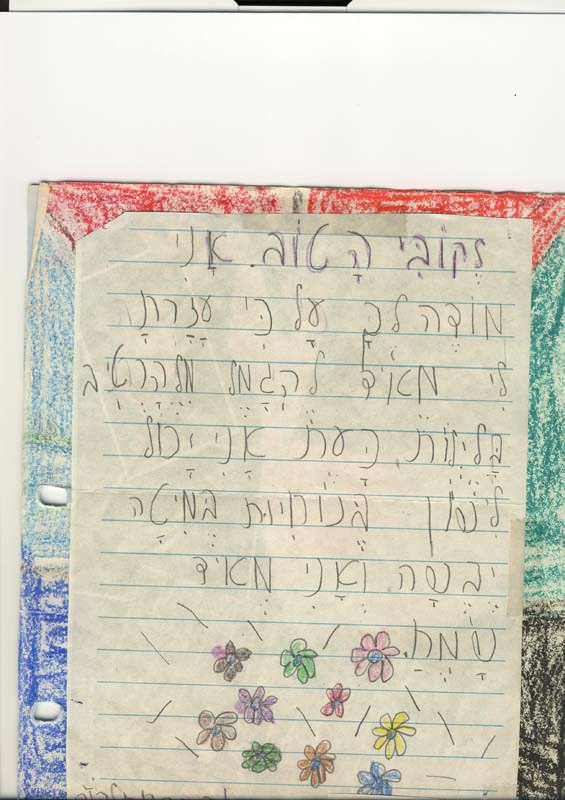 לְקוֹבִּי הָטוֹב. אָנִי
מוֹדֵה לךָ עָל כִּי עָזַרְתָ
לִי מְאוֹד לְהִגָמֵל מִלְהַרְטִיב
בָּלֵילוֹת, כָּעֵת אָנִי יָכוֹל
לִישׁוֹן בְּנוֹחִיוּת בְּמִיטָה
יְבֵשָׁה וְאָנִי מְאוֹד
שָׂמֵחַ.